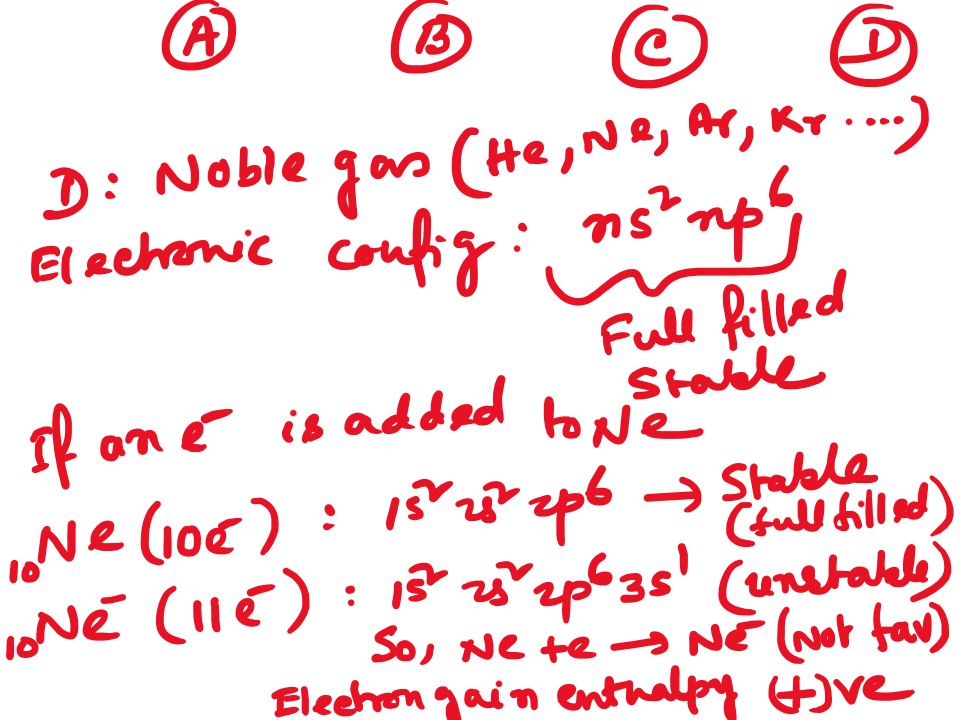 A B C D
D: Noble gas (He, Ne, Ar, Kr ....)
Electronic config: ns² np⁶
Full filled
Stable
If an e⁻ is added to Ne
₁₀Ne (10e⁻) : 1s² 2s² 2p⁶ → Stable
(full filled)
₁₀Ne⁻ (11e⁻) : 1s² 2s² 2p⁶ 3s¹ (unstable)
So, Ne + e → Ne⁻ (Not fav)
Electron gain enthalpy (+)ve